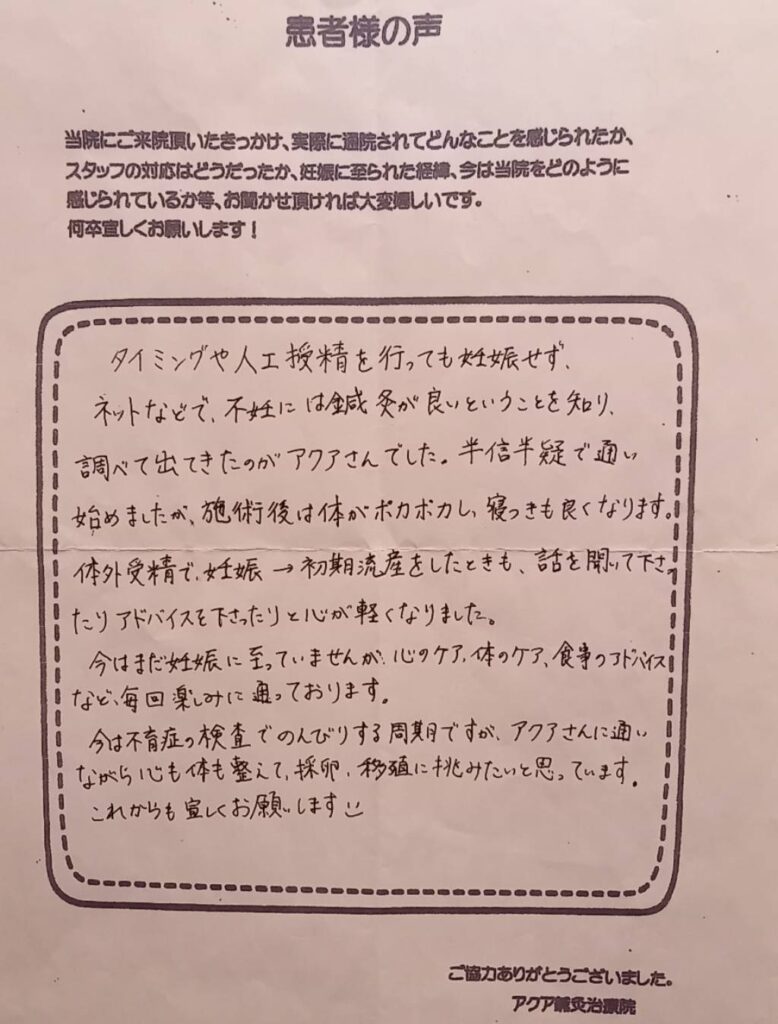 患者様の声
当院にご来院頂いたきっかけ、実際に通院されてどんなことを感じられたか、
スタッフの対応はどうだったか、妊娠に至られた経緯、今は当院をどのように
感じられているか等、お聞かせ頂ければ大変嬉しいです。
何卒宜しくお願いします！
タイミングや人工授精を行っても妊娠せず、
ネットなどで、不妊には鍼灸が良いということを知り、
調べて出てきたのがアクアさんでした。半信半疑で通い
始めましたが、施術後は体がポカポカし、寝つきも良くなります。
体外受精で、妊娠→初期流産をしたときも、話を聞いて下さっ
たりアドバイスを下さったりと心が軽くなりました。
今はまだ妊娠に至っていませんが、心のケア、体のケア、食事のアドバイス
など、毎回楽しみに通っております。
今は不育症の検査でのんびりする周期ですが、アクアさんに通い
ながら心も体も整えて、採卵、移植に挑みたいと思っています。
これからも宜しくお願いします
ご協力ありがとうございました。
アクア鍼灸治療院